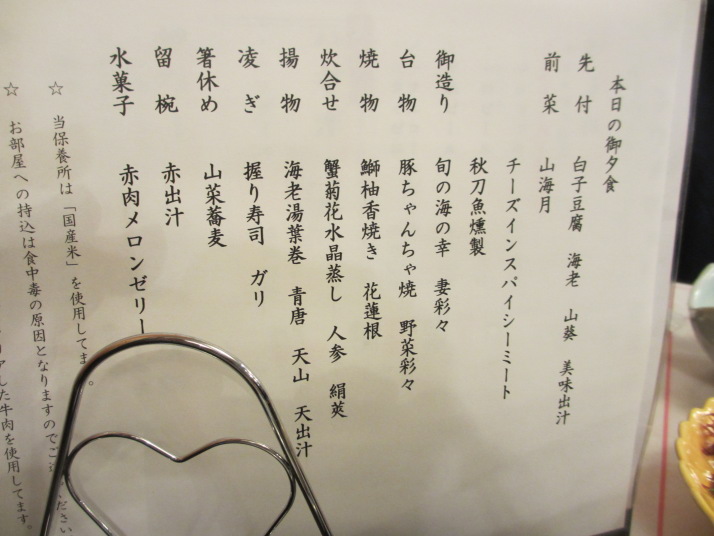 本日の御夕食
先付 白子豆腐 海老 山葵 美味出汁
前菜 山海月
チーズインスパイシーミート
秋刀魚燻製
御造り 旬の海の幸 妻彩々
台物 豚ちゃんちゃ焼 野菜彩々
焼物 鰤柚香焼き 花蓮根
炊合せ 蟹菊花水晶蒸し 人参 絹莢
揚物 海老湯葉巻 青唐 天山 天出汁
凌ぎ 握り寿司 ガリ
箸休め 山菜蕎麦
留椀 赤出汁
水菓子 赤肉メロンゼリー
☆ 当保養所は「国産米」を使用してま 。
☆ お部屋への持込は食中毒の原因となりますのでご ください
した牛肉を使用してます。